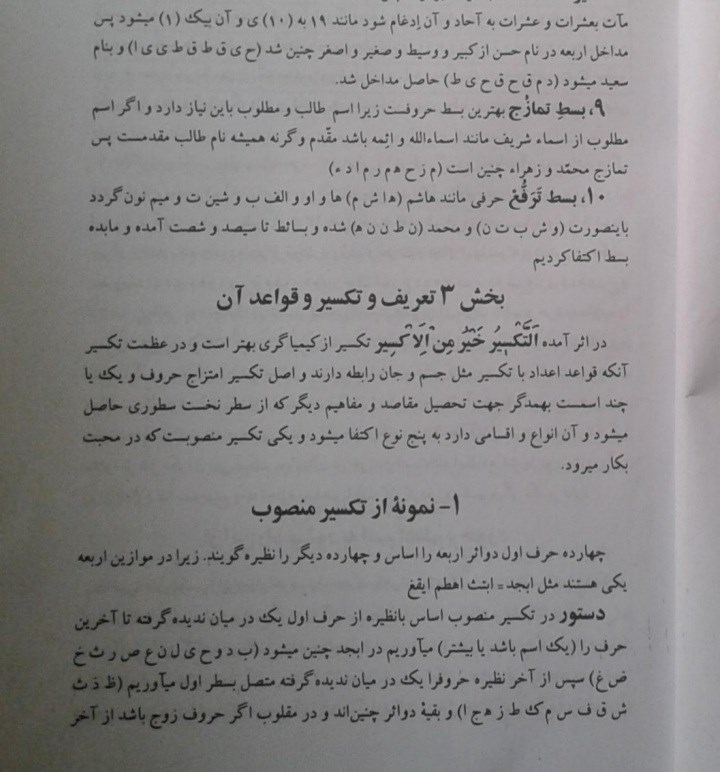 مآت بعشرات و عشرات به آحاد و آن اِدغام شود مانند ۱۹ به (۱۰) ی و آن بیک (۱) میشود پس
مداخل اربعه در نام حسن از کبیر و وسیط و صغیر و اصغر چنین شد (ح ی ق ط ق ط ی ی ا) و بنام
سعید میشود (د م ق ح ق ح ی ط) حاصل مداخل شد.
۹، بسطِ تمازُج بهترین بسط حروفست زیرا اسم طالب و مطلوب باین نیاز دارد و اگر اسم
مطلوب از اسماء شریف مانند اسماءالله و ائمه باشد مقّدم وگرنه همیشه نام طالب مقدمست پس
تمازج محمّد و زهراء چنین است (م ز ح ه م ر م ا د ء)
۱۰، بسط تَرَفُّعْ حرفی مانند هاشم (ه ا ش م) ها و او و الف ب و شین ت و میم نون گردد
باینصورت (و ش ب ت ن) و محمد (ن ط ن ن ه) شده و بسائط تا سیصد و شصت آمده و مابده
بسط اکتفا کردیم
بخش ۳ تعریف و تکسیر و قواعد آن
در اثر آمده اَلتَّکْسیٖرُ خَیْرٌ مِنَ الْاِکْسیٖرِ تکسیر از کیمیاگری بهتر است و در عظمت تکسیر
آنکه قواعد اعداد با تکسیر مثل جسم و جان رابطه دارند و اصل تکسیر امتزاج حروف و یک یا
چند اسمست بهمدگر جهت تحصیل مقاصد و مفاهیم دیگر که از سطر نخست سطوری حاصل
میشود و آن انواع و اقسامی دارد به پنج نوع اکتفا میشود و یکی تکسیر منصوبست که در محبت
بکار میرود.
۱- نمونهٔ از تکسیر منصوب
چهارده حرف اول دوائر اربعه را اساس و چهارده دیگر را نظیره گویند. زیرا در موازین اربعه
یکی هستند مثل ابجد = ابتث اهطم ایقغ
دستور در تکسیر منصوب اساس بانظیره از حرف اول یک در میان ندیده گرفته تا آخرین
حرف را (یک اسم باشد یا بیشتر) میآوریم در ابجد چنین میشود (ب د و ح ی ل ن ع ص ر ث خ
ض غ) سپس از آخر نظیره حروفرا یک در میان ندیده گرفته متصل بسطر اول میآوریم (ظ ذ ث
ش ق ف س م ک ط ز ه ج ا) و بقیهٔ دوائر چنین‌اند و در مقلوب اگر حروف زوج باشد از آخر